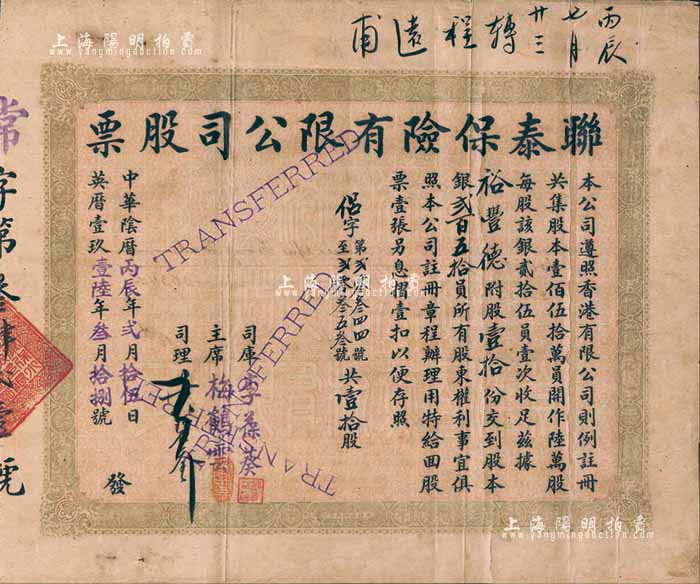 丙辰
七月
廿三
轉程遠甫
聯泰保險有限公司股票
本公司遵照香港有限公司則例註冊
共集股本壹佰伍拾萬員開作陸萬股
每股該銀貳拾伍員壹次收足茲據
裕豐德附股壹拾份交到股本
銀貳百五拾員所有股東權利事宜俱
照本公司註冊章程辦理用特給回股
票壹張另息摺壹扣以便存照
侶字第
至
號共壹拾股
司庫李葆葵
主席梅鶴雲
司理
中華陰曆丙辰年弍月拾伍日
英曆壹玖壹陸年叁月拾捌號
發
常字第
號
TRANSFERRED
TRANSFERRED
上海陽明拍賣
www.yangmingauction.com
上海陽明拍賣
www.yangmingauction.com
上海陽明拍賣
www.yangmingauction.com